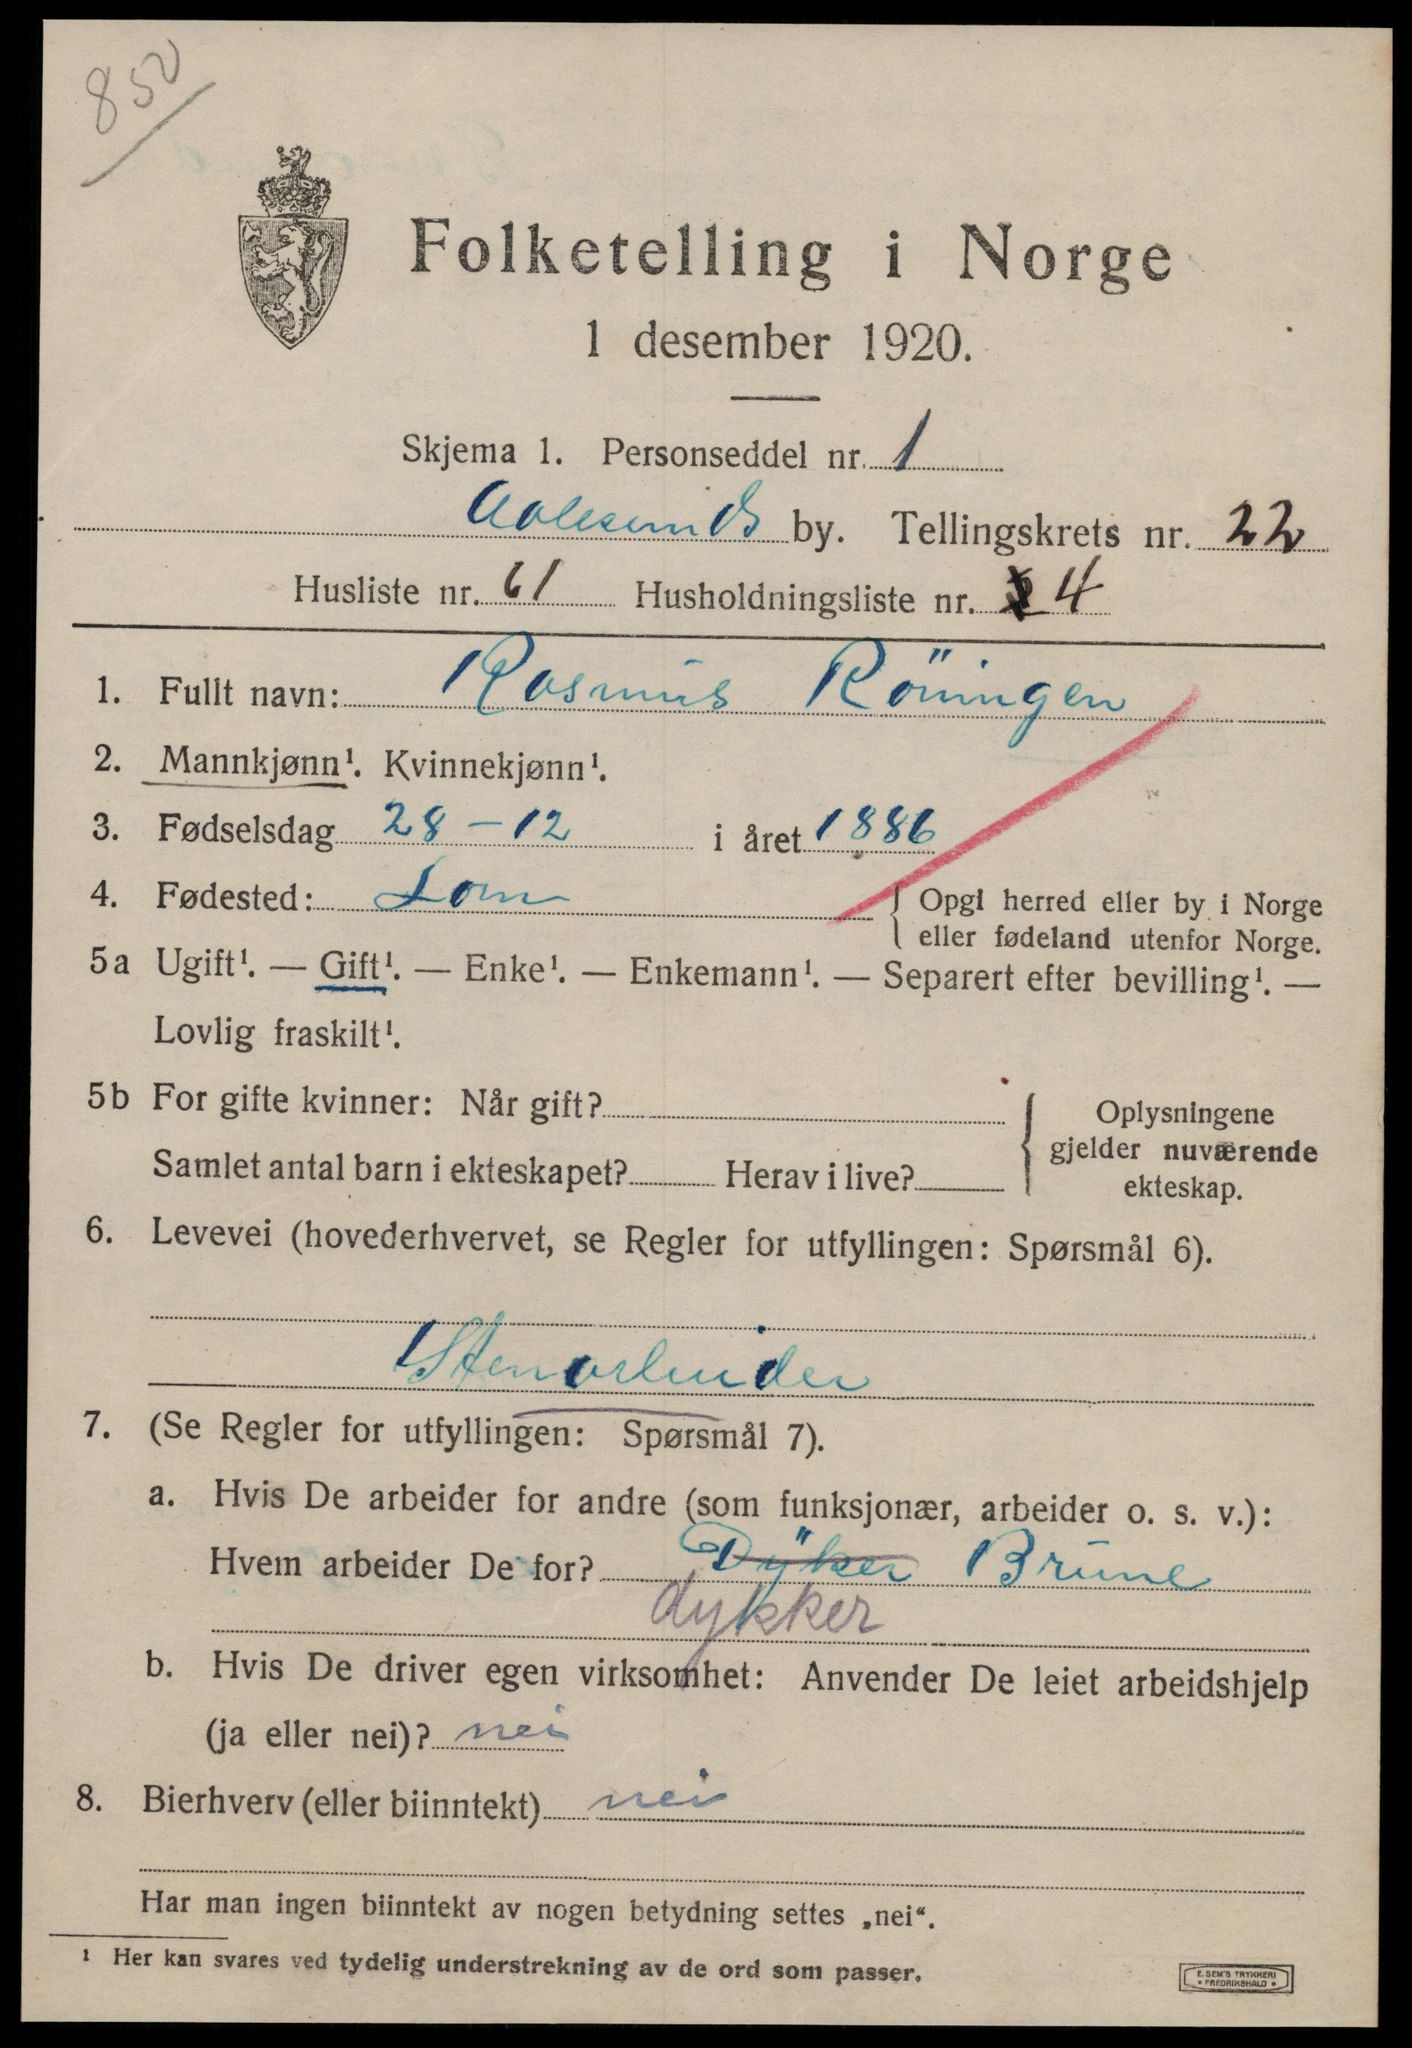 850
Folketelling i Norge
1 desember 1920.
Skjema 1. Personseddel nr. 1
Aalesunds by. Tellingskrets nr. 22
Husliste nr. 61 Husholdningsliste nr. 4
1. Fullt navn: Rasmus Röningen
2. Mannkjønn¹. Kvinnekjønn¹.
3. Fødselsdag 28-12 i året 1886
4. Fødested: Lom { Opgi herred eller by i Norge
eller fødeland utenfor Norge.
5a Ugift¹. — Gift¹. — Enke¹. — Enkemann¹. — Separert efter bevilling¹. —
Lovlig fraskilt¹.
5b For gifte kvinner: Når gift?
Samlet antal barn i ekteskapet? Herav i live?
{ Oplysningene
gjelder nuværende
ekteskap.
6. Levevei (hovederhvervet, se Regler for utfyllingen: Spørsmål 6).
Stenarbeider
7. (Se Regler for utfyllingen: Spørsmål 7).
a. Hvis De arbeider for andre (som funksjonær, arbeider o. s. v.):
Hvem arbeider De for? Dÿker Brune
dykker
b. Hvis De driver egen virksomhet: Anvender De leiet arbeidshjelp
(ja eller nei)? nei
8. Bierhverv (eller biinntekt) nei
Har man ingen biinntekt av nogen betydning settes „nei“.
¹ Her kan svares ved tydelig understrekning av de ord som passer.
E. SEM'S TRYKKERI
• FREDRIKSHALD •